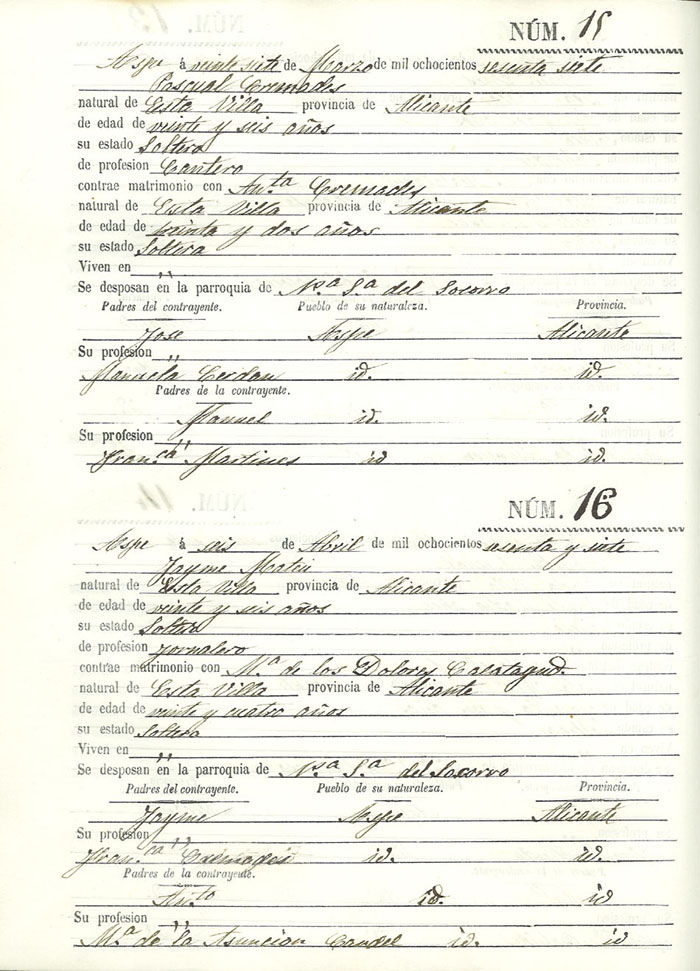 NÚM. 15
Aspe á veinte siete de Marzo de mil ochocientos sesenta siete
Pascual Cremades
natural de Esta Villa provincia de Alicante
de edad de veinte y seis años
su estado Soltero
de profesion Cantero
contrae matrimonio con An.ta Cremades
natural de Esta Villa provincia de Alicante
de edad de treinta y dos años
su estado Soltera
Viven en ,,
Se desposan en la parroquia de N.a S.a del Socorro
Padres del contrayente. Pueblo de su naturaleza. Provincia.
Jose Aspe Alicante
Su profesion ,,
Manuela Cerdan id. id.
Padres de la contrayente.
Manuel id. id.
Su profesion ,,
Fran.ca Martines id id.
NÚM. 16
Aspe á seis de Abril de mil ochocientos sesenta y siete
Jayme Mateu
natural de Esta Villa provincia de Alicante
de edad de veinte y seis años
su estado Soltero
de profesion Jornalero
contrae matrimonio con M.a de los Dolores Calatagud.
natural de Esta Villa provincia de Alicante
de edad de veinte y cuatro años
su estado Soltera
Viven en ,,
Se desposan en la parroquia de N.sa S.a del Socorro
Padres del contrayente. Pueblo de su naturaleza. Provincia.
Jayme Aspe Alicante
Su profesion ,,
Fran.ca Cremades id. id.
Padres de la contrayente.
An.to id. id
Su profesion ,,
M.a de la Asuncion Candel id. id